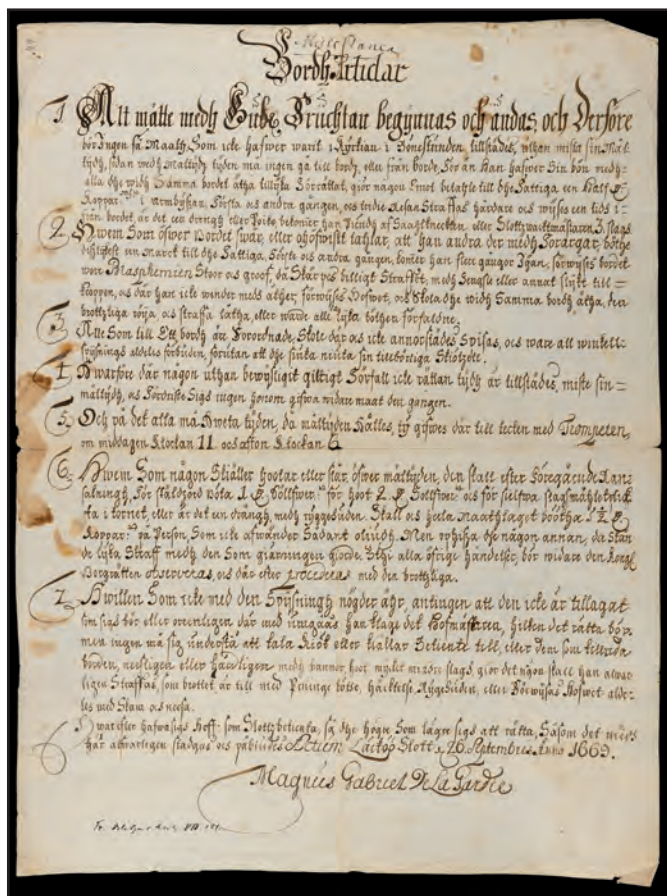 Bordh Articlar
1 Alt måtte medh Gudz Fruchtan begynnas och ändas, och Derföre
bör Ingen få Maath, Som icke hafwer warit i Kyrkian i Bönestunden, tillstädes, uthan mista sin Mål=
tijdh, sedan medh Måltijdz tijden må ingen gå till bordz, eller från borde, För än Han hafwer Sin bön medh
alla dhe widh Samma bordet ätha tillijka Förrättat, giör någon Emot betahle till dhe Fattiga een Half
Koppar i Armbyssan, Första och andra gången, och tridie Resan Straffas hårdare och wijses een tidh i=
från bordet, är det een drengh eller Poike,
2 Hwem Som öfwer Bordet swär, eller ohöfwiskt tahlar, att han andra der medh Förargar, böthe
een Marck till dhe Fattiga, Första och andra gången, kommer han flere gånger Igen, förwijses bordet
wore Blasphemien Stoor och groof, då Skärpes billigt Straffet, medh Fengslu eller annat slijkt till
Kroppen, och där han icke wänder medh åther, förwijses Hofwet, och Skola dhe widh Samma bordh ätha, den
brottzliga röija, och straffa låtha, eller warde alla lijka böthen förfaldne.
3 Alle Som till Ett bordh äre Förordnade, Skole där och icke annorstädes Spisas, och ware all winkell
spijsnings aldeles förbuden, förutan att dhe siuka niuta sin tillbörliga Skiötzell.
4 Hwarföre där någon uthan bewijsligit giltigt Förfall icke i rättan tijdh är tillstädes, miste sin=
måltijdh, och Fördriste Sigh ingen honom gifwa widare maat den gången.
5 Och på det alla må Hweta tijden, då måltijden Hålles, ty gifwes där till tecken med Trompeten,
om middagen Klockan 11. och afton Klockan 6.
6 Hwem Som någon Skiäller hootar eller slår öfwer måltijden, den skall efter Föregående
Sakningh, för skäldzord böta 1 Söllfwer för hoot 2 Sollfwer och för sielfwa slagsmåhlet
ta i tornet, eller är det een drängh, medh ryggesuden. Skall och heela Maathlaget böötha 1½
Koppar på Person, Som icke afwänder Sådant oliudh. Men uphisa dhe någon annan, då Stån
de lijka Straff medh den Som giärningen giorde.
Borgrätten observeras, och där efter procederas med den brottzliga.
7 Hwilken Som icke med den Spijsningh nögder ähr, antingen att den icke är tillagat
som sigh bör eller oreenligen där med umgåås han klage det Hofmästaren, hilken det rätta bör,
men ingen må sigh understå att tala Kiök eller Kiällar Betiente till, eller dem som tillreda
borden, neesligen eller häädeligen medh bannor, hoot mycket mindre slags, giör det någon skall han alwar
ligen Straffas, som brottet är till med Peninge böthe, häcktelse, Ryggesuden, eller Förwijsas Hofwet alde-
les med Skam och neesa.
Hwar efter hafwa sigh Hoff- som Slottzbetienta, så dhe högre Som lägre sigh att rätta, Såsom det
här alfwarligen stadgas och publiceras Actum Läcköö Slott 26. Septembris Anno 1669.
Magnus Gabriel De La Gardie